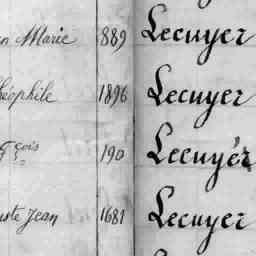 en Marie 889 Lecuyer
héophile 1896 Lecuyer
çois 190 Lecuyér
uste Jean 1681 Lecuyer